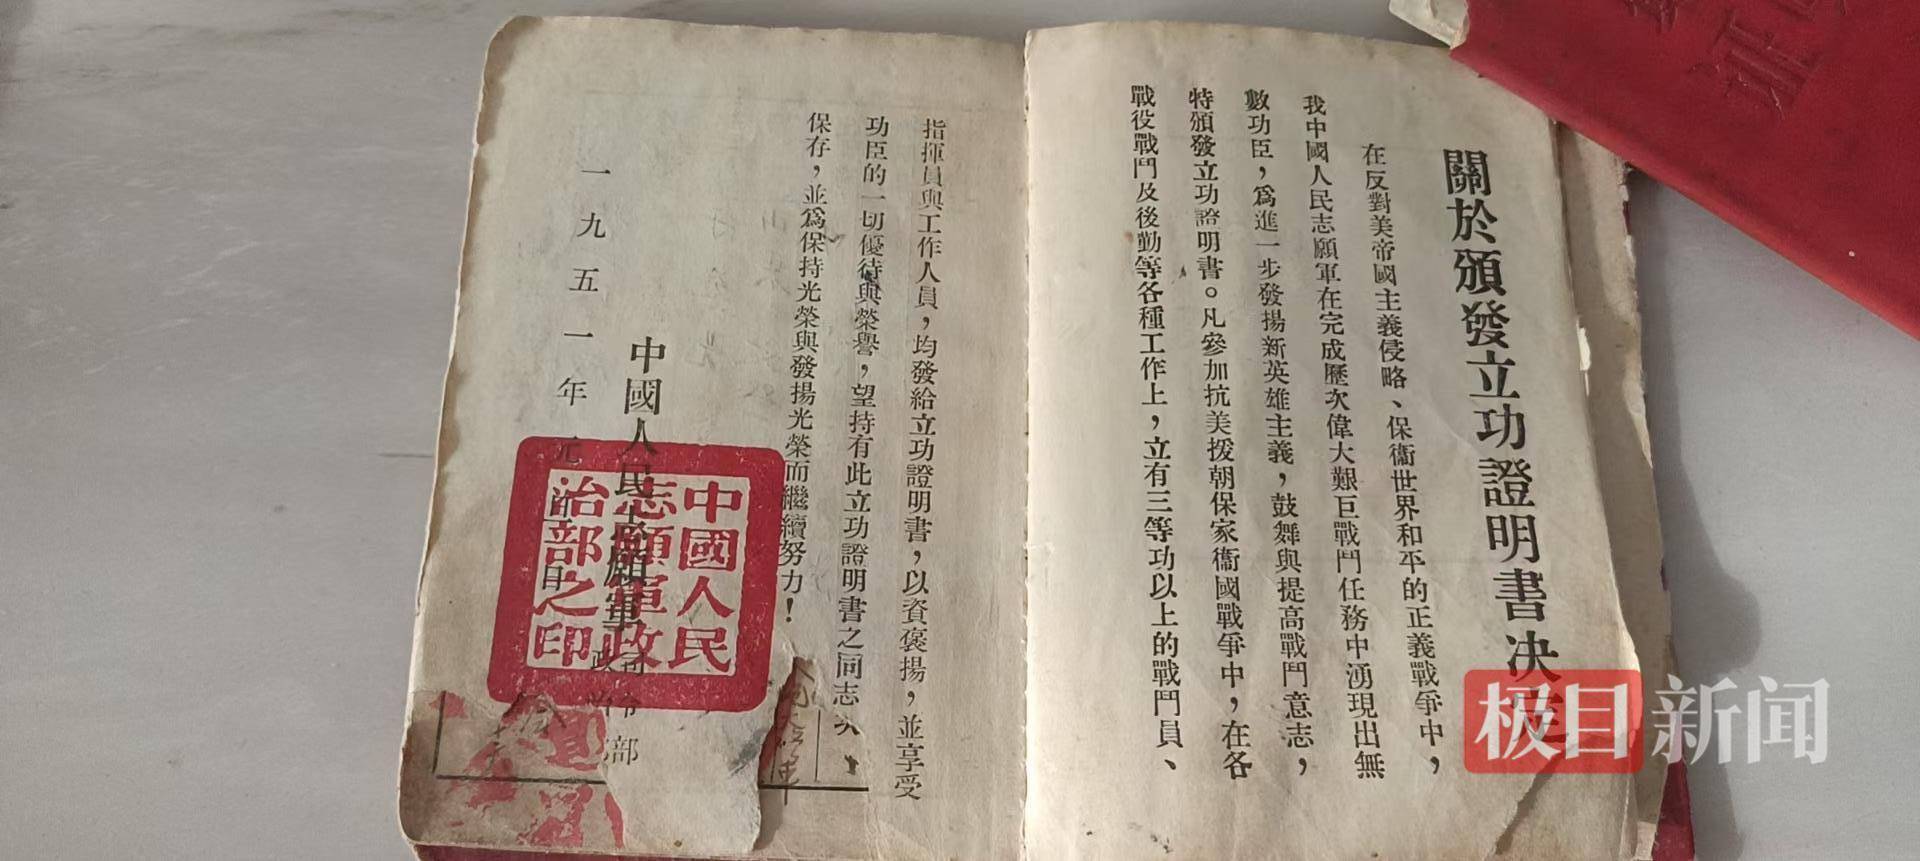 關於頒發立功證明書决定
在反對美帝國主義侵略、保衞世界和平的正義戰爭中，
我中國人民志願軍在完成歷次偉大艱巨戰鬥任務中湧現出無
數功臣，爲進一步發揚新英雄主義，鼓舞與提高戰鬥意志，
特頒發立功證明書。凡參加抗美援朝保家衞國戰爭中，在各
戰役戰鬥及後勤等各種工作上，立有三等功以上的戰鬥員、
指揮員與工作人員，均發給立功證明書，以資褒揚，並享受
功臣的一切優待與榮譽，望持有此立功證明書之同志
保存，並爲保持光榮與發揚光榮而繼續努力！
中國人民志願軍
司令部
政
一九五一年元月 日
中國人民
志願軍政
治部之印
极目新闻